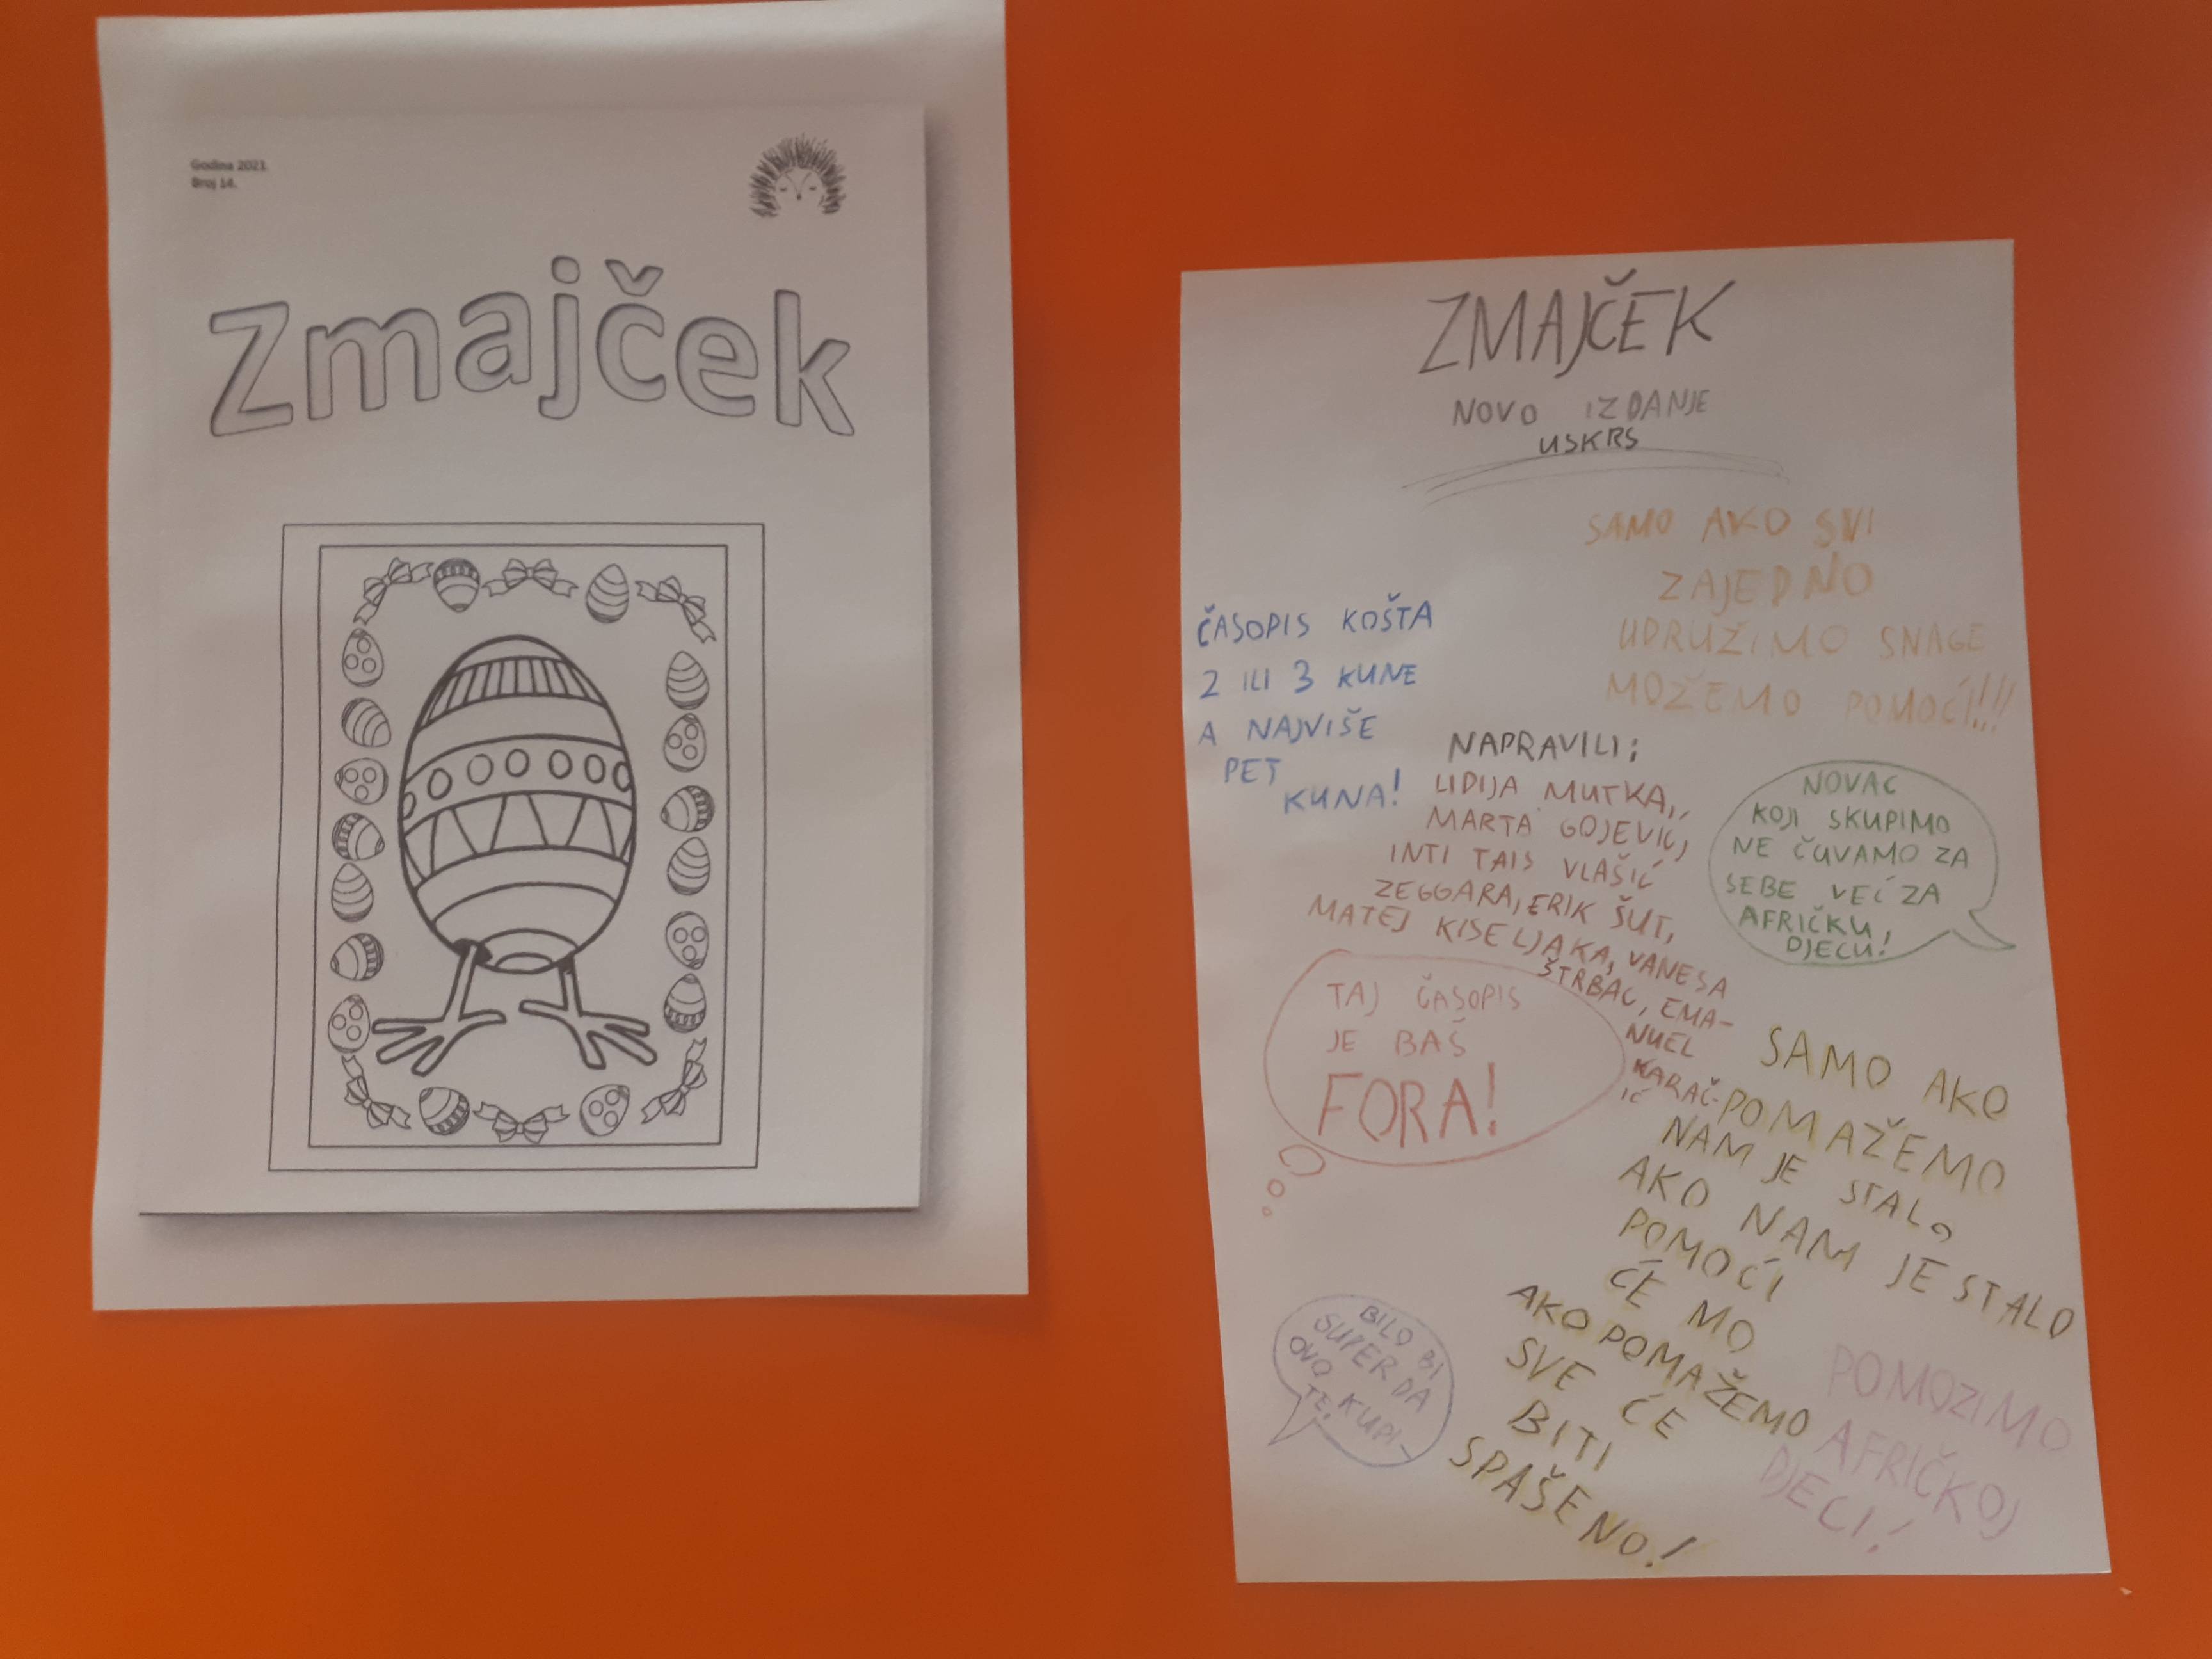 Godina 2021.
Broj 14.
Zmajček
ZMAJČEK
NOVO IZDANJE
USKRS
SAMO AKO SVI
ZAJEDNO
UDRUŽIMO SNAGE
MOŽEMO POMOĆI!!!
ČASOPIS KOŠTA
2 ILI 3 KUNE
A NAJVIŠE
PET
KUNA!
NAPRAVILI:
LIDIJA MUTKA,
MARTA GOJEVIĆ,
INTI TAIS VLAŠIĆ
ZEGGARA, ERIK ŠUT,
MATEJ KISELJAKA, VANESA
ŠTRBAC, EMA-
NUEL
KARAČ-
IĆ
NOVAC
KOJI SKUPIMO
NE ČUVAMO ZA
SEBE VEĆ ZA
AFRIČKU
DJECU!
TAJ ČASOPIS
JE BAŠ
FORA!
SAMO AKO
POMAŽEMO
NAM JE STALO
AKO NAM JE STALO
POMOĆI
ĆE MO
AKO POMAŽEMO
SVE ĆE
BITI
SPAŠENO!
BILO BI
SUPER DA
OVO KUPI-
TE.
POMOZIMO
AFRIČKOJ
DJECI!